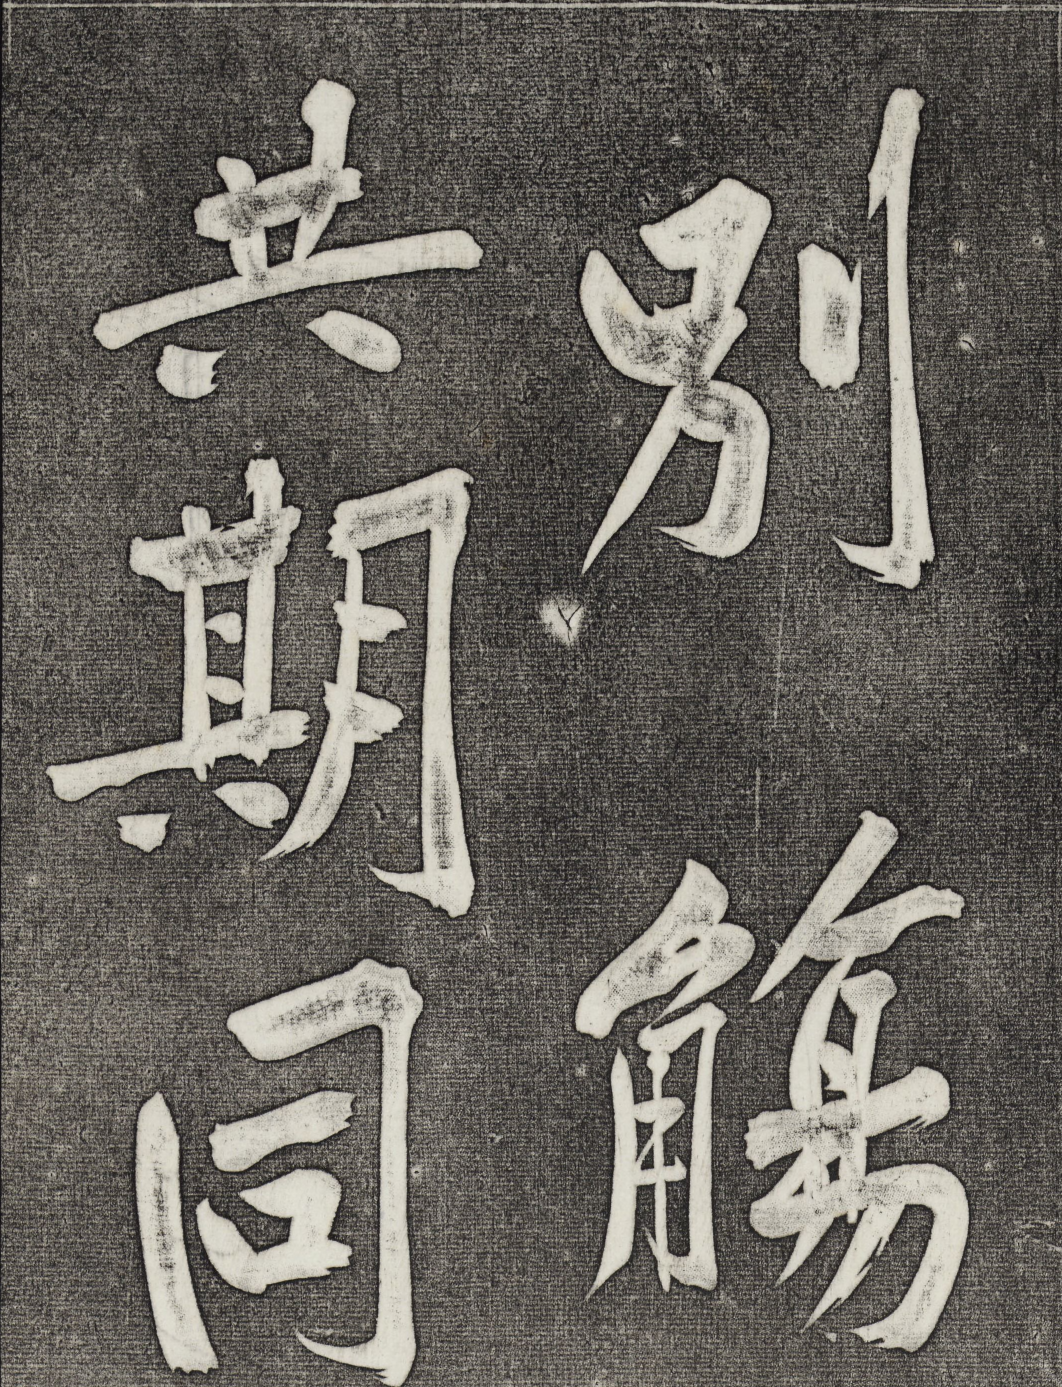 別觴
共期同